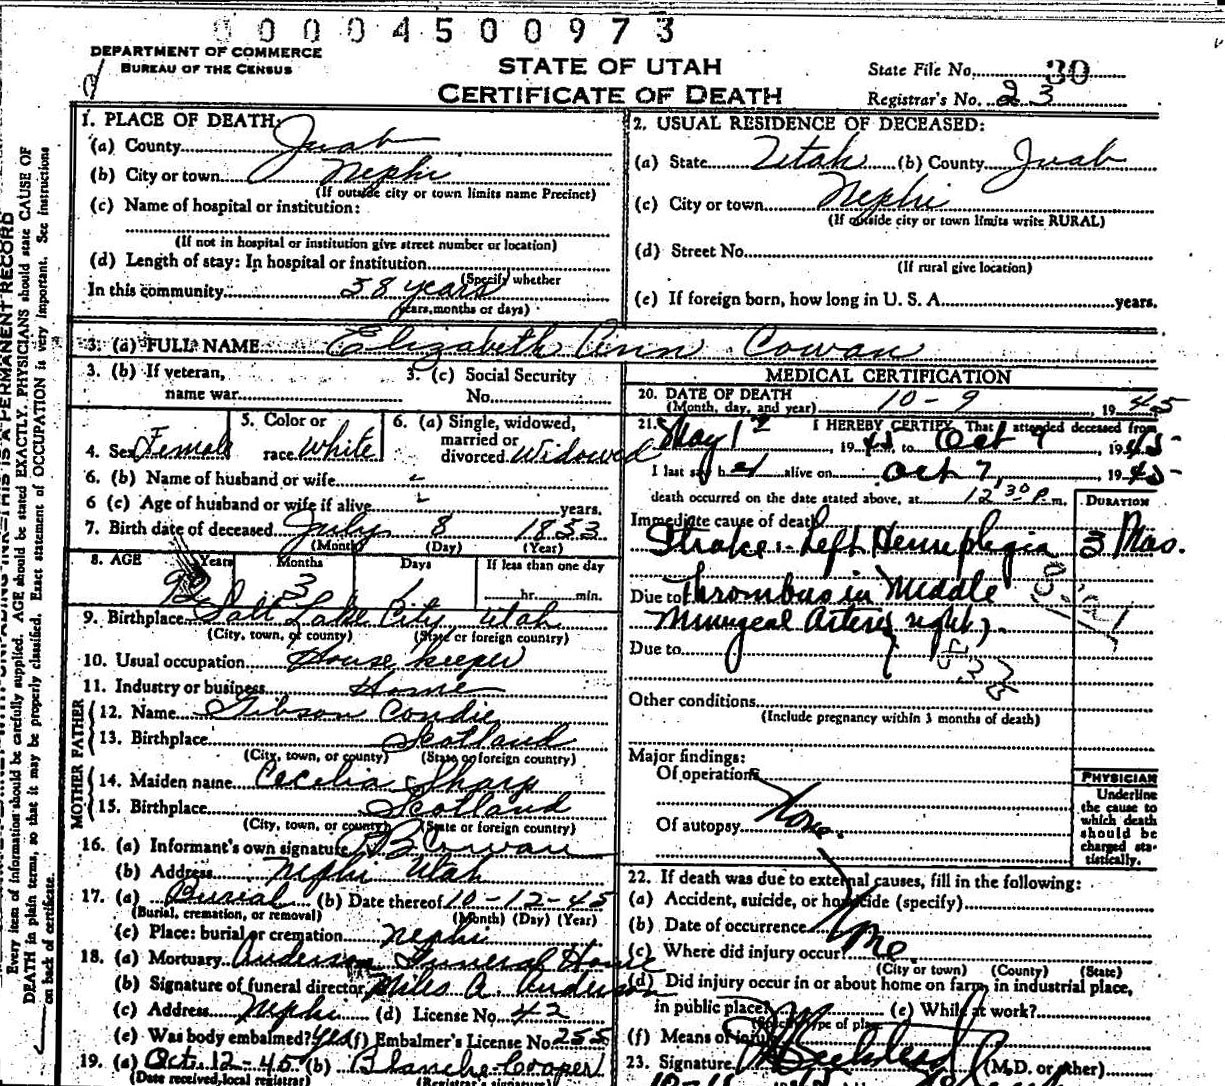 00004500973
DEPARTMENT OF COMMERCE
BUREAU OF THE CENSUS
STATE OF UTAH
CERTIFICATE OF DEATH
State File No. 30
Registrar's No. 23
1. PLACE OF DEATH:
(a) County Juab
(b) City or town Nephi
(If outside city or town limits name Precinct)
(c) Name of hospital or institution:
(If not in hospital or institution give street number or location)
(d) Length of stay: In hospital or institution
(Specify whether
In this community 58 years
years, months or days)
2. USUAL RESIDENCE OF DECEASED:
(a) State Utah (b) County Juab
(c) City or town Nephi
(If outside city or town limits write RURAL)
(d) Street No.
(If rural give location)
(e) If foreign born, how long in U. S. A. years.
3. (a) FULL NAME Elizabeth Ann Cowan
3. (b) If veteran,
name war
3. (c) Social Security
No.
4. Sex Female
5. Color or
race White
6. (a) Single, widowed,
married or
divorced Widowed
6. (b) Name of husband or wife -
6 (c) Age of husband or wife if alive - years.
7. Birth date of deceased July 8 1853
(Month) (Day) (Year)
8. AGE Years Months Days If less than one day
92 3 1 hr. min.
9. Birthplace Salt Lake City Utah
(City, town, or county) (State or foreign country)
10. Usual occupation House keeper
11. Industry or business Home
FATHER
12. Name Gibson Condie
13. Birthplace Scotland
(City, town, or county) (State or foreign country)
MOTHER
14. Maiden name Cecelia Sharp
15. Birthplace Scotland
(City, town, or county) (State or foreign country)
16. (a) Informant's own signature Cowan
(b) Address Nephi Utah
17. (a) Burial (b) Date thereof 10-12-45
(Burial, cremation, or removal) (Month) (Day) (Year)
(c) Place: burial or cremation Nephi
18. (a) Mortuary Anderson Funeral Home
(b) Signature of funeral director Miles A. Anderson
(c) Address Nephi (d) License No. 42
(e) Was body embalmed? Yes (f) Embalmer's License No. 255
19. (a) Oct. 12-45 (b) Blanche Cooper
(Date received local registrar) (Registrar's signature)
MEDICAL CERTIFICATION
20. DATE OF DEATH
(Month, day, and year) 10-9, 1945
21. I HEREBY CERTIFY That I attended deceased from
May 1, 1945 to Oct 9, 1945
I last saw her alive on Oct 7, 1945
death occurred on the date stated above, at 12 30 P. m.
DURATION
Immediate cause of death
Stroke: Left Hemiplegia 5 Mos.
Due to Thrombus in Middle
Meningeal Artery right).
Due to
Other conditions
(Include pregnancy within 3 months of death)
Major findings:
Of operations
Of autopsy None.
PHYSICIAN
Underline
the cause to
which death
should be
charged sta-
tistically.
22. If death was due to external causes, fill in the following:
(a) Accident, suicide, or homicide (specify)
(b) Date of occurrence
(c) Where did injury occur?
(City or town) (County) (State)
(d) Did injury occur in or about home on farm, in industrial place,
in public place? (e) While at work?
(Specify type of place)
(f) Means of injury
23. Signature (M.D. or other)
THIS IS A PERMANENT RECORD
Every item of information should be carefully supplied. AGE should be stated EXACTLY. PHYSICIANS should state CAUSE OF
DEATH in plain terms, so that it may be properly classified. Exact statement of OCCUPATION is very important. See instructions
on back of certificate.